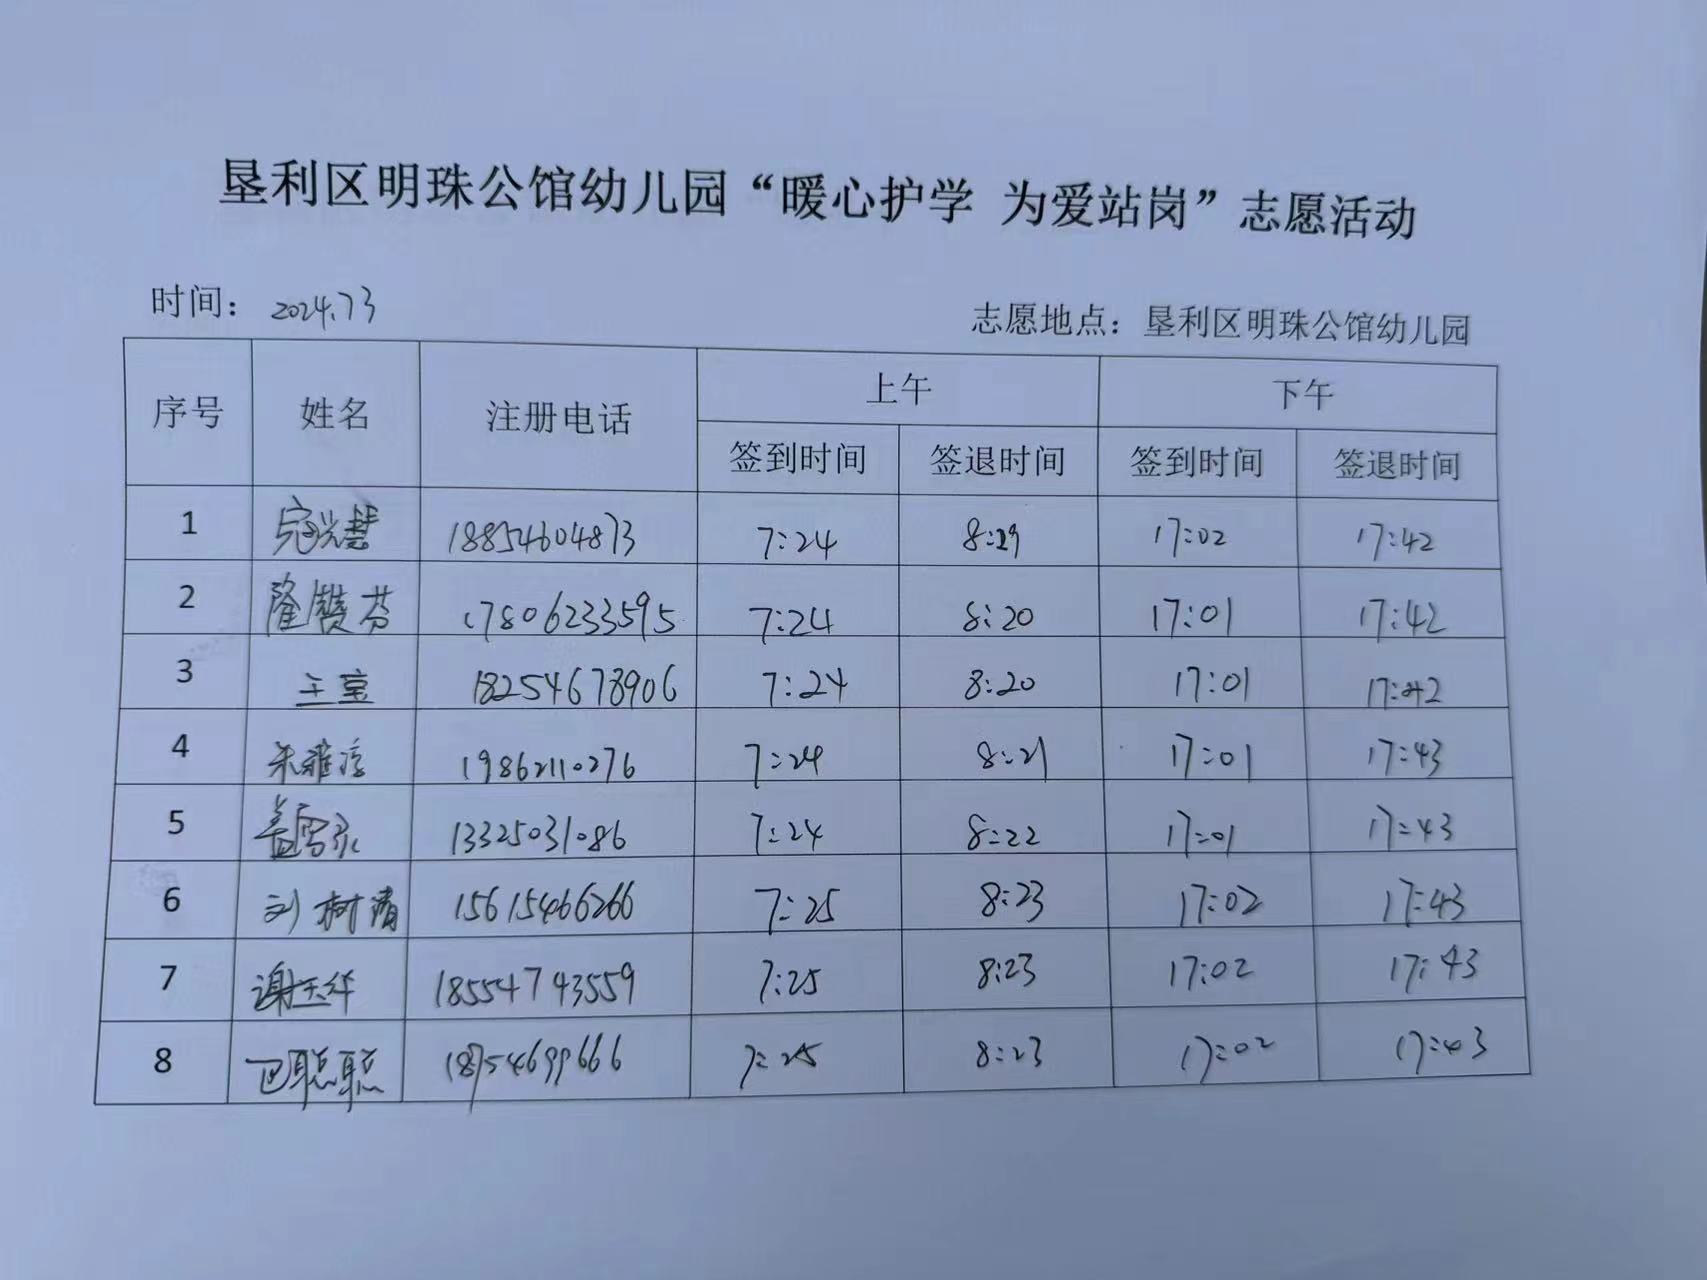 垦利区明珠公馆幼儿园“暖心护学 为爱站岗”志愿活动
时间： 2024.7.3 志愿地点：垦利区明珠公馆幼儿园
序号 姓名 注册电话 上午 下午
签到时间 签退时间 签到时间 签退时间
1 18854604873 7:24 8:19 17:02 17:42
2 隆赞芬 17806233595 7:24 8:20 17:01 17:42
3 王宝 18254678906 7:24 8:20 17:01 17:42
4 朱雅淳 19862110276 7:24 8:21 17:01 17:43
5 盖雪永 13325031086 7:24 8:22 17:01 17:43
6 刘树清 15615466266 7:25 8:23 17:02 17:43
7 谢玉华 18554743559 7:25 8:23 17:02 17:43
8 巴聪聪 18754699666 7:25 8:23 17:02 17:43